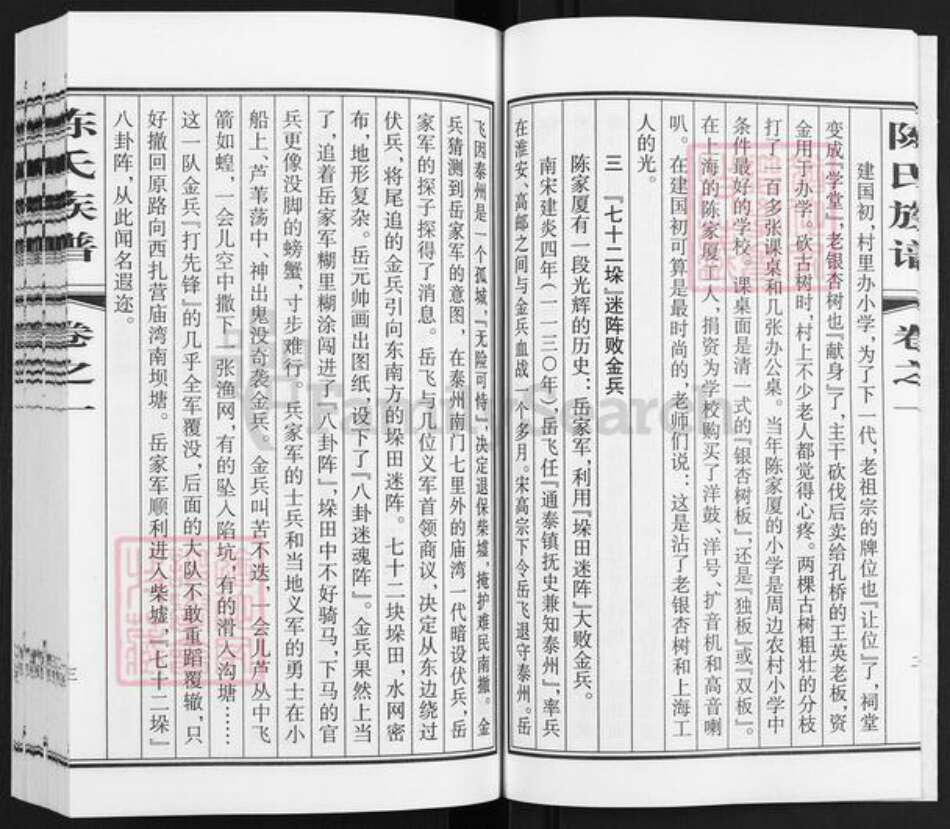 陈氏族谱
卷之一
建国初，村里办小学，为了下一代，老祖宗的牌位也『让位』了，祠堂
变成『学堂』，老银杏树也『献身』了，主干砍伐后卖给孔桥的王英老板，资
金用于办学。砍古树时，村上不少老人都觉得心疼。两棵古树粗壮的分枝
打了一百多张课桌和几张办公桌。当年陈家厦的小学是周边农村小学中
条件最好的学校。课桌面是清一式的『银杏树板』，还是『独板』或『双板』。
在上海的陈家厦工人，捐资为学校购买了洋鼓、洋号、扩音机和高音喇
叭。在建国初可算是最时尚的，老师们说：这是沾了老银杏树和上海工
人的光。
三 『七十二垛』迷阵败金兵
陈家厦有一段光辉的历史：岳家军，利用『垛田迷阵』大败金兵。
南宋建炎四年（一一三〇年），岳飞任『通泰镇抚史兼知泰州』，率兵
在淮安、高邮之间与金兵血战一个多月。宋高宗下令岳飞退守泰州。岳
飞因泰州是一个孤城，『无险可恃』，决定退保柴墟，掩护难民南撤。金
兵猜测到岳家军的意图，在泰州南门七里外的庙湾一代暗设伏兵，岳
家军的探子探得了消息。岳飞与几位义军首领商议，决定从东边绕过
伏兵，将尾追的金兵引向东南方的垛田迷阵。七十二块垛田，水网密
布，地形复杂。岳元帅画出图纸，设下了『八卦迷魂阵』。金兵果然上当
了，追着岳家军糊里糊涂闯进了『八卦阵』，垛田中不好骑马，下马的官
兵更像没脚的螃蟹，寸步难行。兵家军的士兵和当地义军的勇士在小
船上、芦苇荡中、神出鬼没奇袭金兵。金兵叫苦不迭，一会儿芦丛中飞
箭如蝗，一会儿空中撒下一张渔网，有的坠入陷坑，有的滑入沟塘……
这一队金兵『打先锋』的几乎全军覆没，后面的大队不敢重蹈覆辙，只
好撤回原路向西扎营庙湾南坝塘。岳家军顺利进入柴墟，『七十二垛』
八卦阵，从此闻名遐迩。
陈氏族谱
卷之一
三
FamilySearch